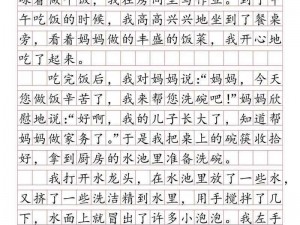 午吃饭的时候，我高高兴兴地坐到了餐桌
旁，看着妈妈做的丰盛的饭菜，我开心地
吃了起来。
吃完饭后，我对妈妈说：“妈妈，今天
您做饭辛苦了，我来帮您洗碗吧！”妈妈欣
慰地说：“好啊，我的儿子长大了，知道帮
妈妈做家务了。”于是我把桌上的碗筷收拾
好，拿到厨房的水池里准备洗碗。
我打开水龙头，在水池里放了一些水，
又挤了一些洗洁精到水里，用手搅拌了几
下，水面上就冒出了许多小泡泡。我左手